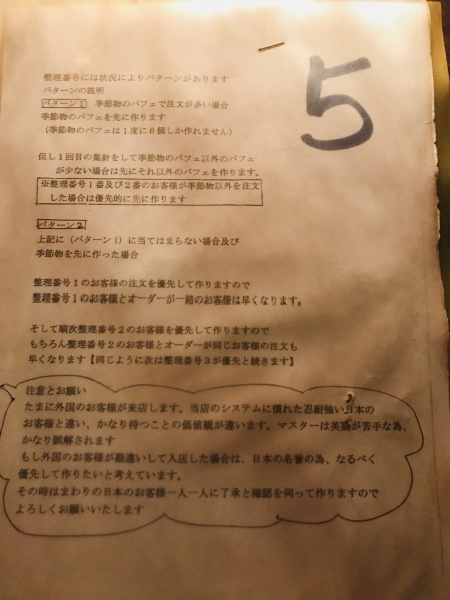 5
整理番号には状況によりパターンがあります
パターンの説明
パターン1 季節物のパフェで注文が多い場合
季節物のパフェを先に作ります
(季節物のパフェは1度に6個しか作れません)
但し1回目の集計をして季節物のパフェ以外のパフェ
が少ない場合は先にそれ以外のパフェを作ります。
※整理番号1番及び2番のお客様が季節物以外を注文
した場合は優先的に先に作ります
パターン2
上記に(パターン1)に当てはまらない場合及び
季節物を先に作った場合
整理番号1のお客様の注文を優先して作りますので
整理番号1のお客様とオーダーが一緒のお客様は早くなります。
そして順次整理番号2のお客様を優先して作りますので
もちろん整理番号2のお客様とオーダーが同じお客様の注文も
早くなります【同じように次は整理番号3が優先と続きます】
注意とお願い
たまに外国のお客様が来店します。当店のシステムに慣れた忍耐強い日本の
お客様と違い、かなり待つことの価値観が違います。マスターは英語が苦手な為、
かなり誤解されます
もし外国のお客様が勘違いして入店した場合は、日本の名誉の為、なるべく
優先して作りたいと考えています。
その時はまわりの日本のお客様一人一人に了承と確認を伺って作りますので
よろしくお願いいたします